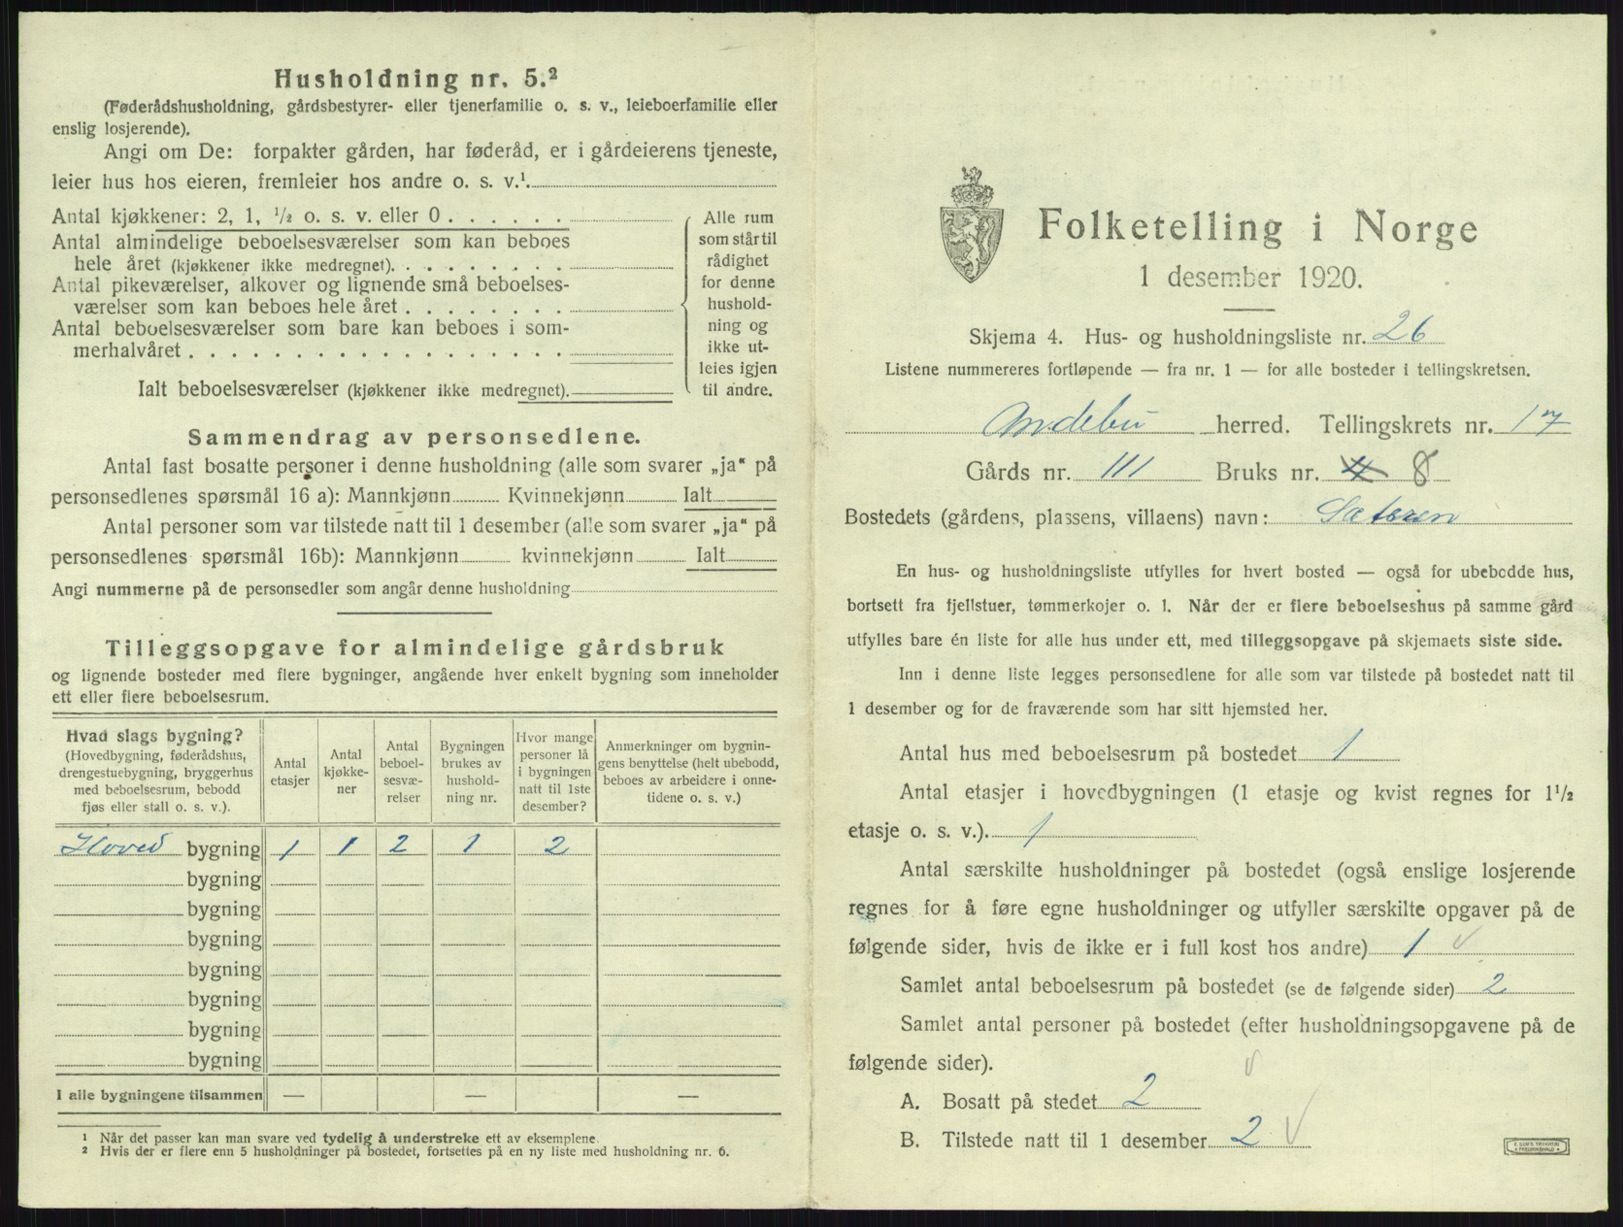 Husholdning nr. 5.²
(Føderådshusholdning, gårdsbestyrer- eller tjenerfamilie o. s. v., leieboerfamilie eller
enslig losjerende).
Angi om De: forpakter gården, har føderåd, er i gårdeierens tjeneste,
leier hus hos eieren, fremleier hos andre o. s. v.¹.
Antal kjøkkener: 2, 1, ½ o. s. v. eller 0 . . . . . .
Antal almindelige beboelsesværelser som kan beboes
hele året (kjøkkener ikke medregnet). . . . . . . .
Antal pikeværelser, alkover og lignende små beboelses-
værelser som kan beboes hele året . . . . . . . .
Antal beboelsesværelser som bare kan beboes i som-
merhalvåret . . . . . . . . . . . . . . . . . .
Ialt beboelsesværelser (kjøkkener ikke medregnet).
Alle rum
som står til
rådighet
for denne
hushold-
ning og
ikke ut-
leies igjen
til andre.
Sammendrag av personsedlene.
Antal fast bosatte personer i denne husholdning (alle som svarer „ja“ på
personsedlenes spørsmål 16 a): Mannkjønn Kvinnekjønn Ialt
Antal personer som var tilstede natt til 1 desember (alle som svarer „ja“ på
personsedlenes spørsmål 16b): Mannkjønn kvinnekjønn Ialt
Angi nummerne på de personsedler som angår denne husholdning
Tilleggsopgave for almindelige gårdsbruk
og lignende bosteder med flere bygninger, angående hver enkelt bygning som inneholder
ett eller flere beboelsesrum.
Hvad slags bygning?
(Hovedbygning, føderådshus,
drengestuebygning, bryggerhus
med beboelsesrum, bebodd
fjøs eller stall o. s. v.).
Antal
etasjer
Antal
kjøkke-
ner
Antal
beboel-
sesvæ-
relser
Bygningen
brukes av
hushold-
ning nr.
Hvor mange
personer lå
i bygningen
natt til 1ste
desember?
Anmerkninger om bygnin-
gens benyttelse (helt ubebodd,
beboes av arbeidere i onne-
tidene o. s. v.)
Hoved bygning 1 1 2 1 2
bygning
bygning
bygning
bygning
bygning
bygning
bygning
I alle bygningene tilsammen — — —
¹ Når det passer kan man svare ved tydelig å understreke ett av eksemplene.
² Hvis der er flere enn 5 husholdninger på bostedet, fortsettes på en ny liste med husholdning nr. 6.
Folketelling i Norge
1 desember 1920.
Skjema 4. Hus- og husholdningsliste nr. 26
Listene nummereres fortløpende — fra nr. 1 — for alle bosteder i tellingskretsen.
Andebu herred. Tellingskrets nr. 17
Gårds nr. 111 Bruks nr. 8
Bostedets (gårdens, plassens, villaens) navn: Sæteren
En hus- og husholdningsliste utfylles for hvert bosted — også for ubebodde hus,
bortsett fra fjellstuer, tømmerkojer o. l. Når der er flere beboelseshus på samme gård
utfylles bare én liste for alle hus under ett, med tilleggsopgave på skjemaets siste side.
Inn i denne liste legges personsedlene for alle som var tilstede på bostedet natt til
1 desember og for de fraværende som har sitt hjemsted her.
Antal hus med beboelsesrum på bostedet 1
Antal etasjer i hovedbygningen (1 etasje og kvist regnes for 1½
etasje o. s. v.). 1
Antal særskilte husholdninger på bostedet (også enslige losjerende
regnes for å føre egne husholdninger og utfyller særskilte opgaver på de
følgende sider, hvis de ikke er i full kost hos andre) 1 √
Samlet antal beboelsesrum på bostedet (se de følgende sider) 2
Samlet antal personer på bostedet (efter husholdningsopgavene på de
følgende sider).
A. Bosatt på stedet 2 √
B. Tilstede natt til 1 desember 2 √